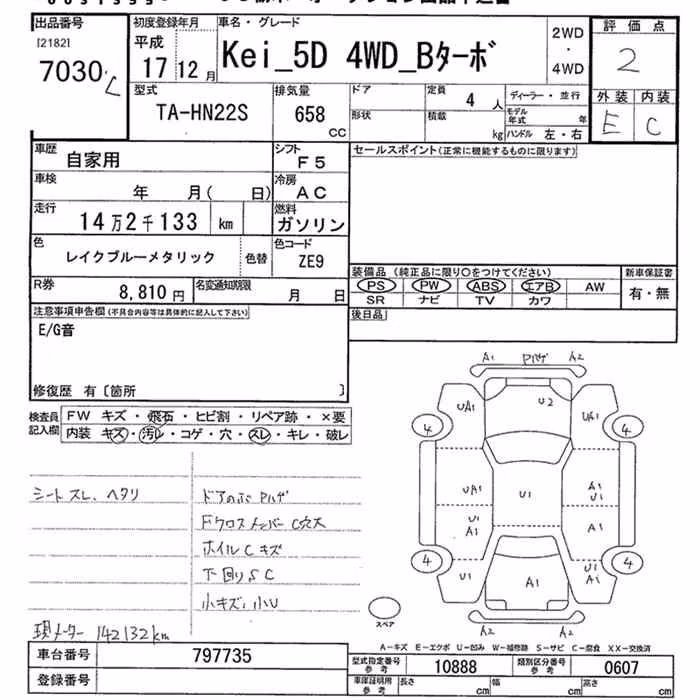 出品番号
[2182]
7030
初度登録年月
平成
17 12月
車名・グレード
Kei_5D 4WD_Bターボ
2WD
・
4WD
評価点
2
外装 内装
E C
型式
TA-HN22S
排気量
658
CC
ドア
形状
定員
4 人
積載
kg
ディーラー・並行
モデル年式 年
ハンドル 左・右
車歴
自家用
シフト
F5
セールスポイント(正常に機能するものに限ります)
車検
年 月( 日)
冷房
AC
走行
14万2千133 km
燃料
ガソリン
色
レイクブルーメタリック
色替
色コード
ZE9
装備品 (純正品に限り○をつけてください)
新車保証書
PS PW ABS エアB AW
有・無
SR ナビ TV カワ
R券
8,810 円
名変通知期限
月 日
後日品
注意事項申告欄(不具合内容等は具体的に記入して下さい)
E/G音
修復歴 有〔箇所 〕
検査員記入欄
FW キズ・飛石・ヒビ割・リペア跡・×要
内装 キズ・汚レ・コゲ・穴・スレ・キレ・破レ
A1 Pハゲ A2
UA1 U2 UA1
4 4
UA1 U1 A1 U1
U1 A1 A1
4 4
U1 A1 U1 A1
A2 A2
スペア
シートスレ、ヘタリ
ドアのぶPハゲ
FクロスメンバーC穴大
ホイルCキズ
下回りSC
小キズ、小U
現メーター 142132km
A-キズ E-エクボ U-凹み W-補修跡 S-サビ C-腐食 XX-交換済
車台番号
797735
型式指定番号
参考
10888
類別区分番号
参考
0607
登録番号
車庫証明用
参考
長さ cm
幅 cm
高さ cm